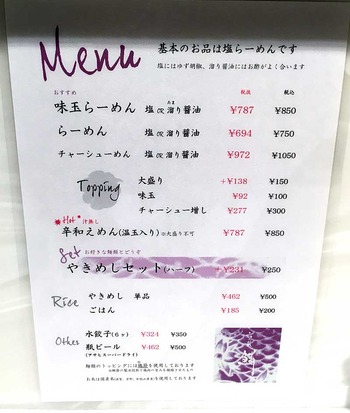 Menu
基本のお品は塩らーめんです
塩にはゆず胡椒、溜り醤油にはお酢がよく合います
おすすめ 税抜 税込
味玉らーめん 塩 OR 溜り醤油 ¥787 ¥850
たま
らーめん 塩 OR 溜り醤油 ¥694 ¥750
チャーシューめん 塩 OR 溜り醤油 ¥972 ¥1050
Topping
大盛り +¥138 ¥150
味玉 ¥92 ¥100
チャーシュー増し ¥277 ¥300
Hot 汁無し
辛和えめん(温玉入り)※大盛り不可 ¥787 ¥850
Set お好きな麺類とどうぞ
やきめしセット(ハーフ) +¥231 ¥250
Rice
やきめし 単品 ¥462 ¥500
ごはん ¥185 ¥200
Other
水餃子(6ヶ) ¥324 ¥350
瓶ビール ¥462 ¥500
(アサヒスーパードライ)
麺類のトッピングには
を使用しております